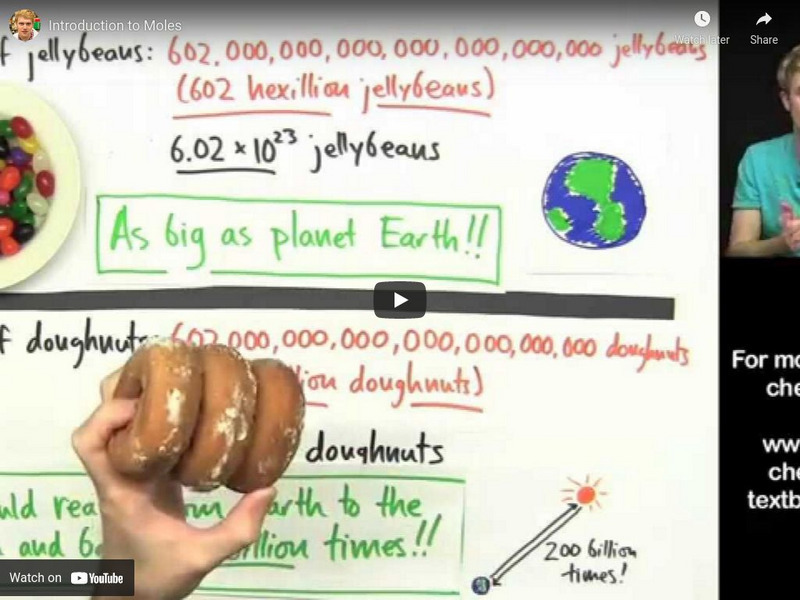 Introduction to Moles
Watch later
Share
f jellybeans: 602,000,000,000,000,000,000,000 jellybeans
(602 hexillion jellybeans)
6.02 × 10²³ jellybeans
As big as planet Earth!!
f doughnuts: 602,000,000,000,000,000,000,000 doughnuts
ion doughnuts)
doughnuts
uld rea earth to the
and b illion times!!
200 billion
times!
For mo
che
ww
che
textb
Watch on YouTube